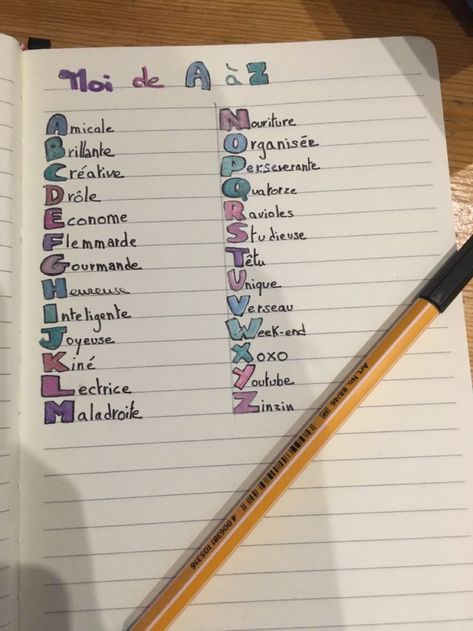 Moi de A à Z
Amicale
Brillante
Créative
Drôle
Econome
Flemmarde
Gourmande
Heureuse
Inteligente
Joyeuse
Kiné
Lectrice
Maladroite
Nouriture
Organisée
Perseverante
Quatorze
Ravioles
Studieuse
Têtu
Unique
Verseau
Week-end
Xoxo
Youtube
Zinzin
Art.-No. 88/46
4 006381 105316